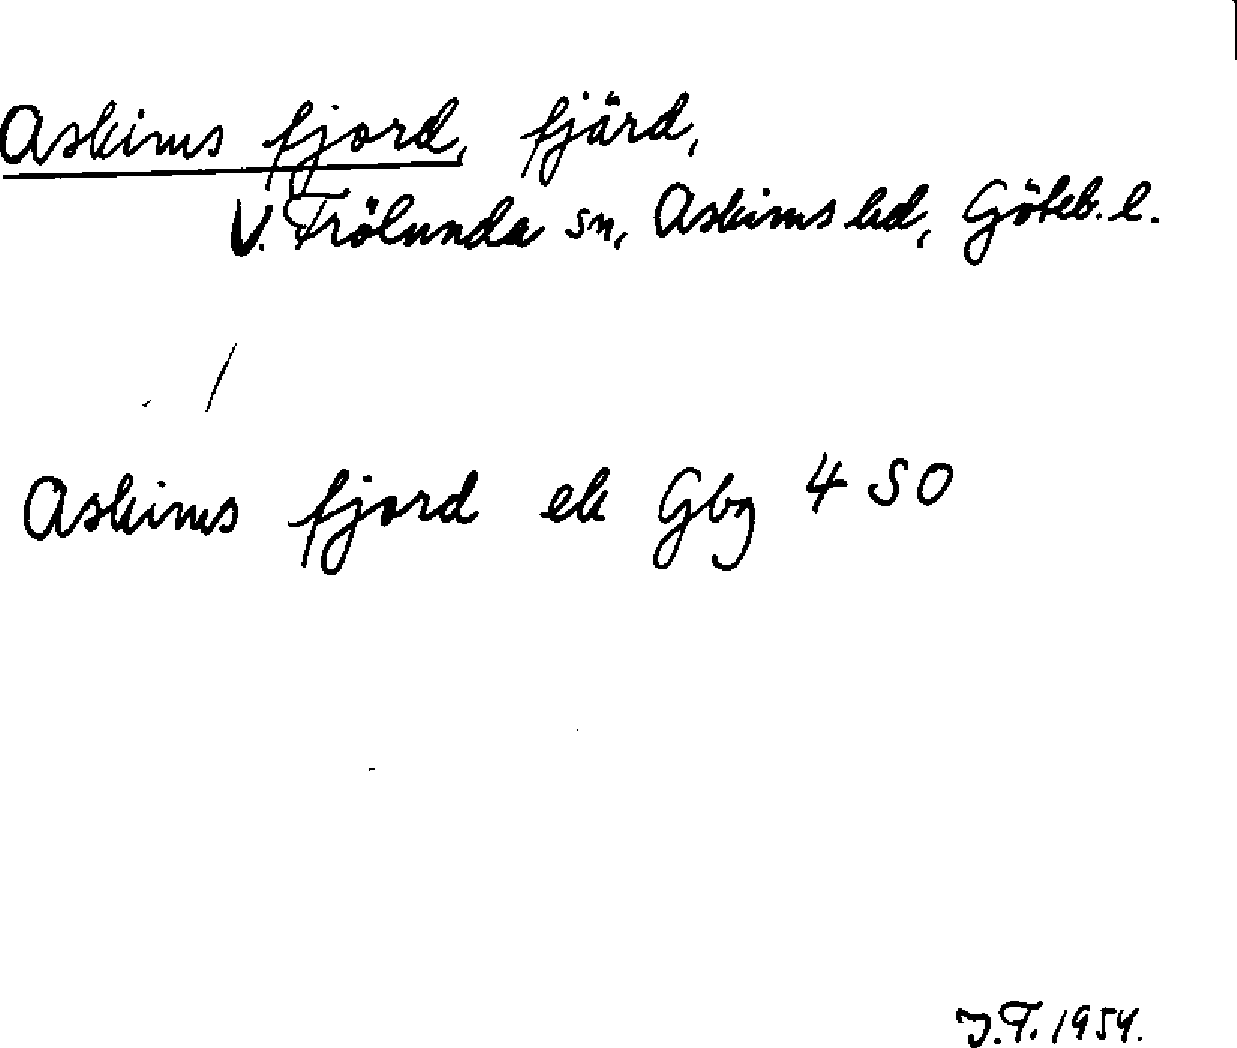 Askims fjord, fjärd,
V. Frölunda sn, Askims hd, Göteb. l.
Askims fjord ek Gbg 4 SO
J.T. 1954.